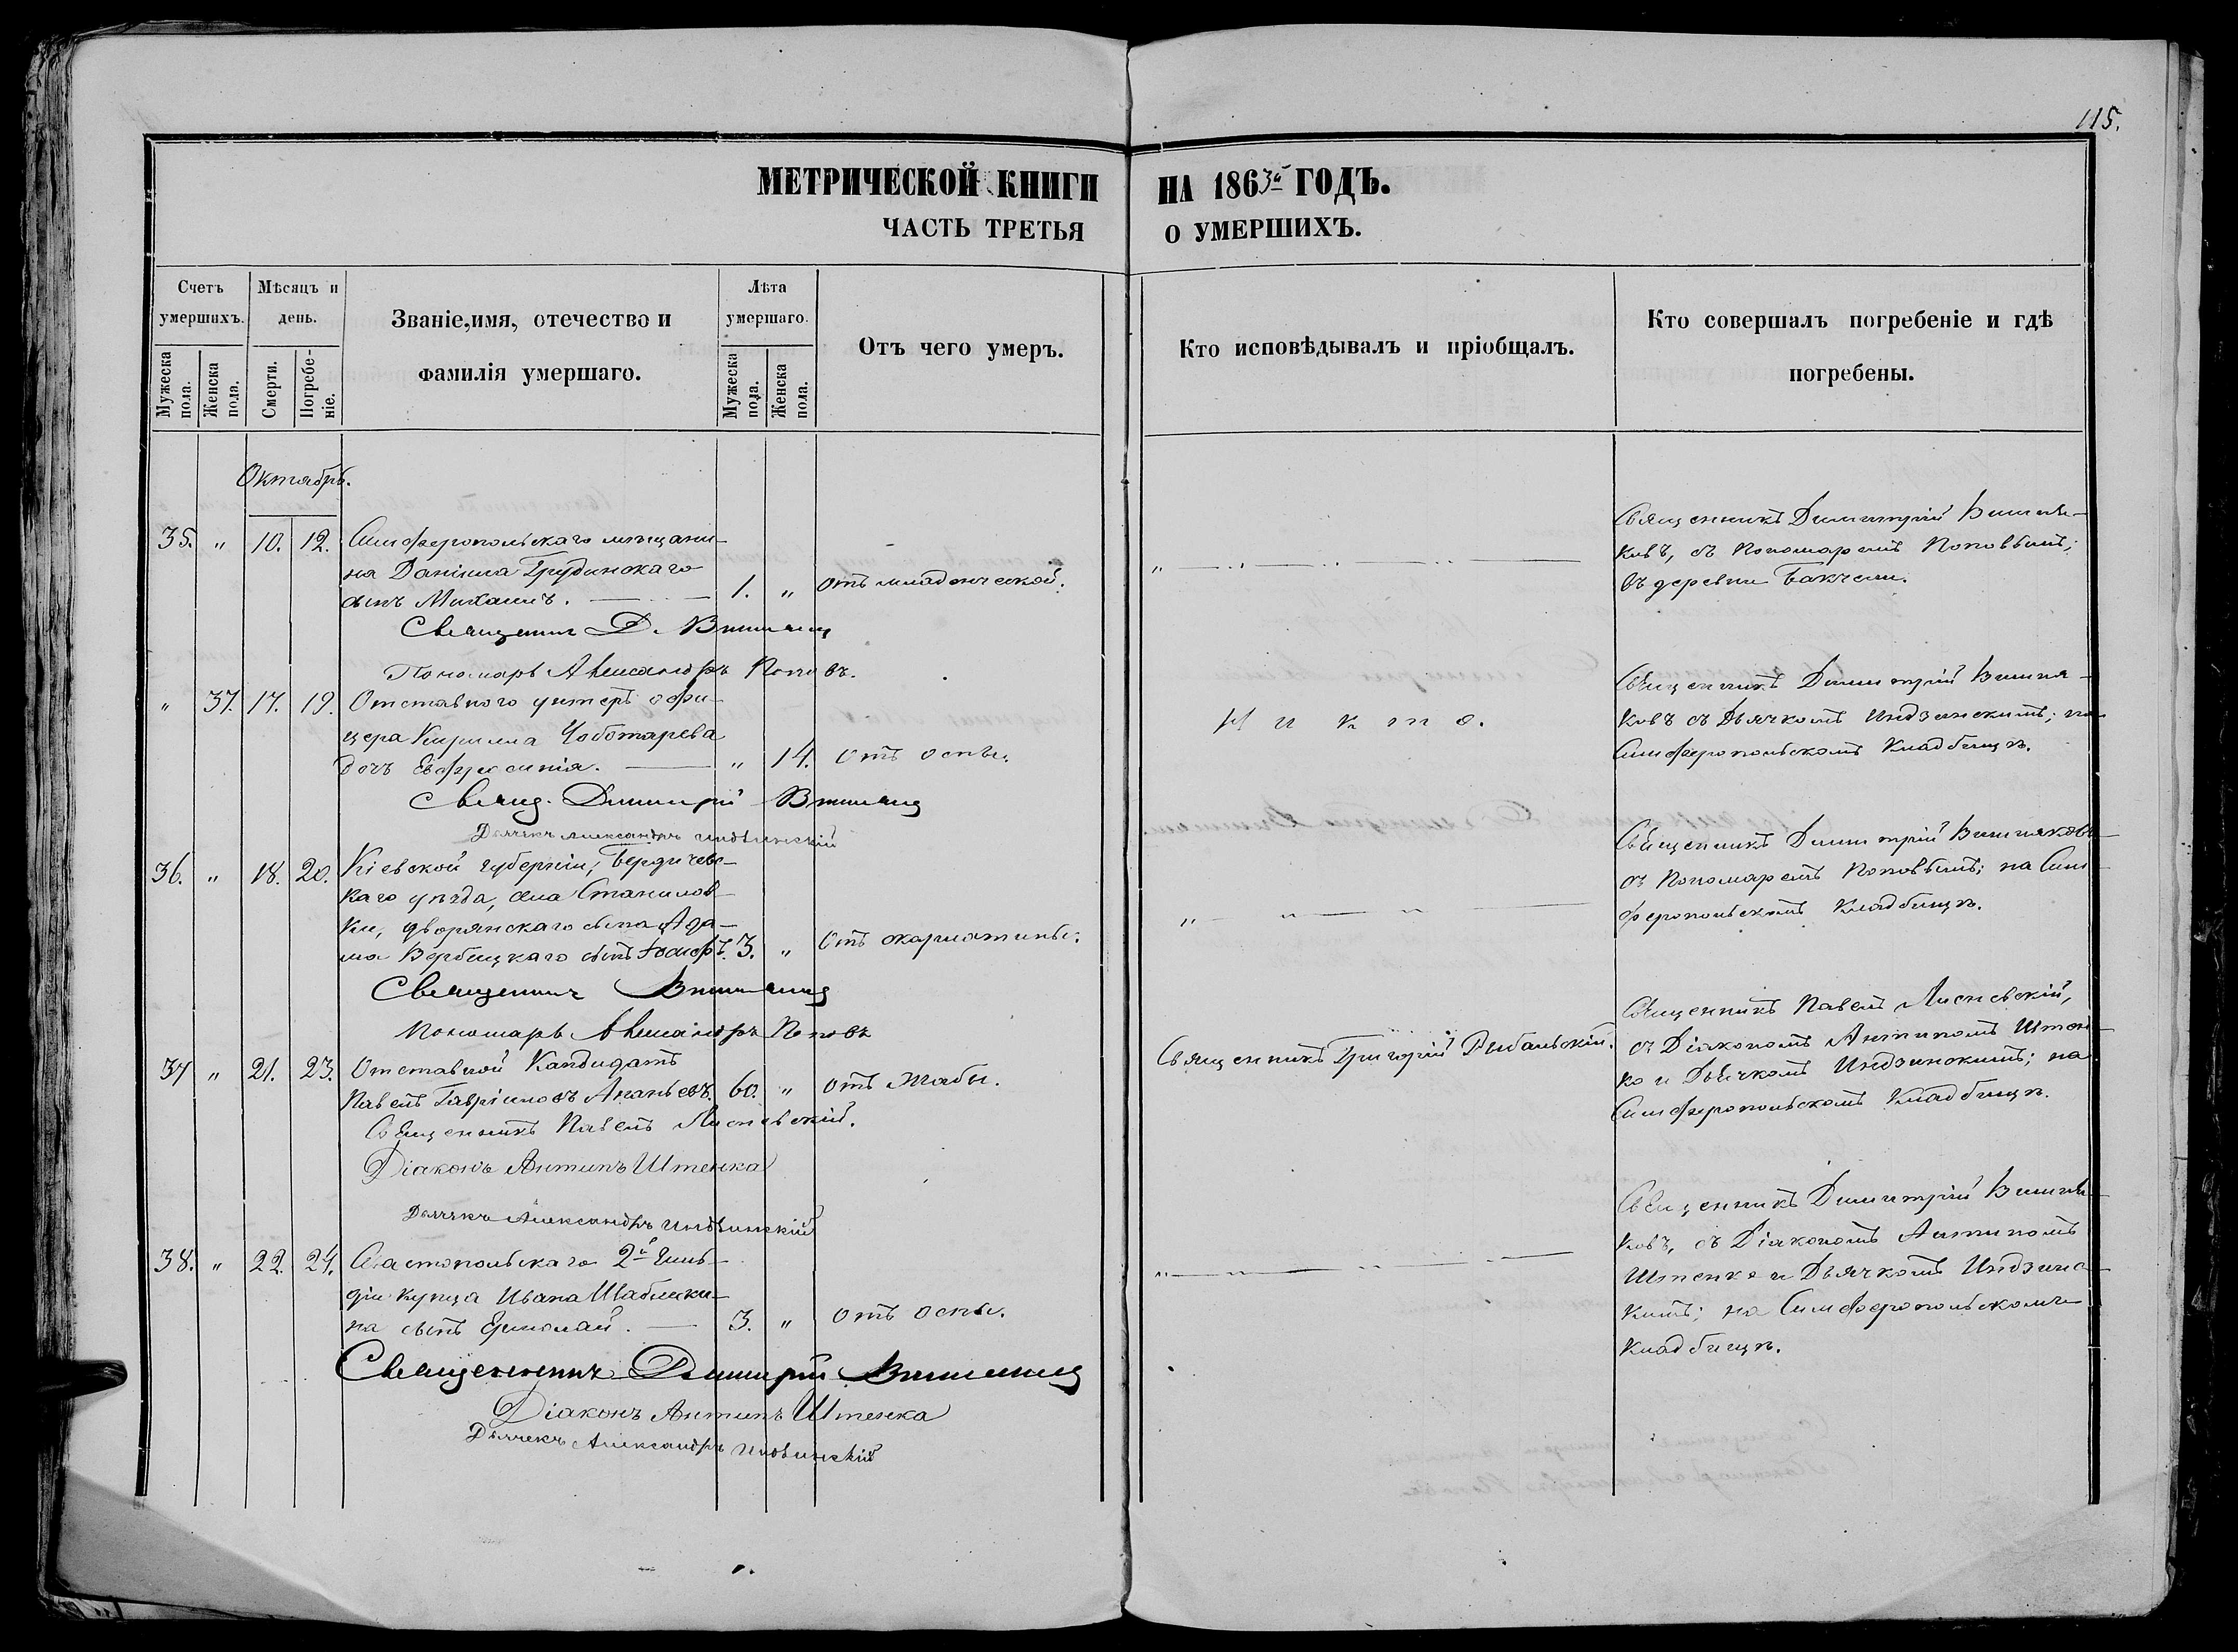 115.
МЕТРИЧЕСКОЙ КНИГИ НА 1863й ГОДЪ.
ЧАСТЬ ТРЕТЬЯ О УМЕРШИХЪ.
Счетъ умершихъ.
Мужеска пола.
Женска пола.
Мѣсяцъ и день.
Смерти.
Погребе-ніе.
Званіе,имя, отечество и
фамилія умершаго.
Лѣта умершаго.
Мужеска пола.
Женска пола.
Отъ чего умеръ.
Кто исповѣдывалъ и пріобщалъ.
Кто совершалъ погребеніе и гдѣ
погребены.
Октябрь.
35. " 10. 12. Симферопольскаго мѣщани-
на Даніила Грудинскаго
сынъ Михаилъ. 1. " отъ младенческой.
"
Священникъ Димитрій Вишня-
ковъ, съ Пономаремъ Поповымъ;
въ деревни Бакчели.
Священникъ Д. Вишняковъ
Пономарь Александръ Поповъ.
" 37. 17. 19. Отставного унтеръ офи-
цера Кирилла Чоботарева
дочь Евфросинія. " 14. Отъ оспы.
Никто.
Священникъ Димитрій Вишня-
ковъ съ Дьячкомъ Индзинскимъ; на
Симферопольскомъ Кладбищѣ.
Свящ. Димитрій Вишняковъ
Дьячекъ Александръ Индзинскій
36. " 18. 20. Кіевской губерніи, Бердичевс-
каго уѣзда, села Станилов-
ки, дворянскаго сына Ада-
ма Вербицкаго сынъ Іосифъ. 3. " Отъ скарлатины.
"
Священникъ Димитрій Вишняковъ
съ Пономаремъ Поповымъ; на Сим-
феропольскомъ Кладбищѣ.
Священникъ Вишняковъ
Пономарь Александръ Поповъ
37 " 21. 23. Отставной Кандидатъ
Павелъ Гавріиловъ Ананьевъ. 60. " отъ жабы.
Священникъ Григорій Рыбальскій.
Священникъ Павелъ
съ Діакономъ Антипомъ Штен-
ко и Дьячкомъ Индзинскимъ; на
Симферопольскомъ Кладбищѣ.
Священникъ Павелъ
Діаконъ Антипъ Штенка
Дьячекъ Александръ Индзинскій
38. " 22. 24. Севастопольскаго 2й Гиль-
діи купца Ивана Шаблики-
на сынъ Ермолай. 3. " Отъ оспы.
"
Священникъ Димитрій Вишня-
ковъ, съ Діакономъ Антипомъ
Штенко и Дьячкомъ Индзинс-
кимъ; на Симферопольскомъ
Кладбищѣ.
Священникъ Димитрій Вишняковъ
Діаконъ Антипъ Штенка
Дьячекъ Александръ Индзинскій